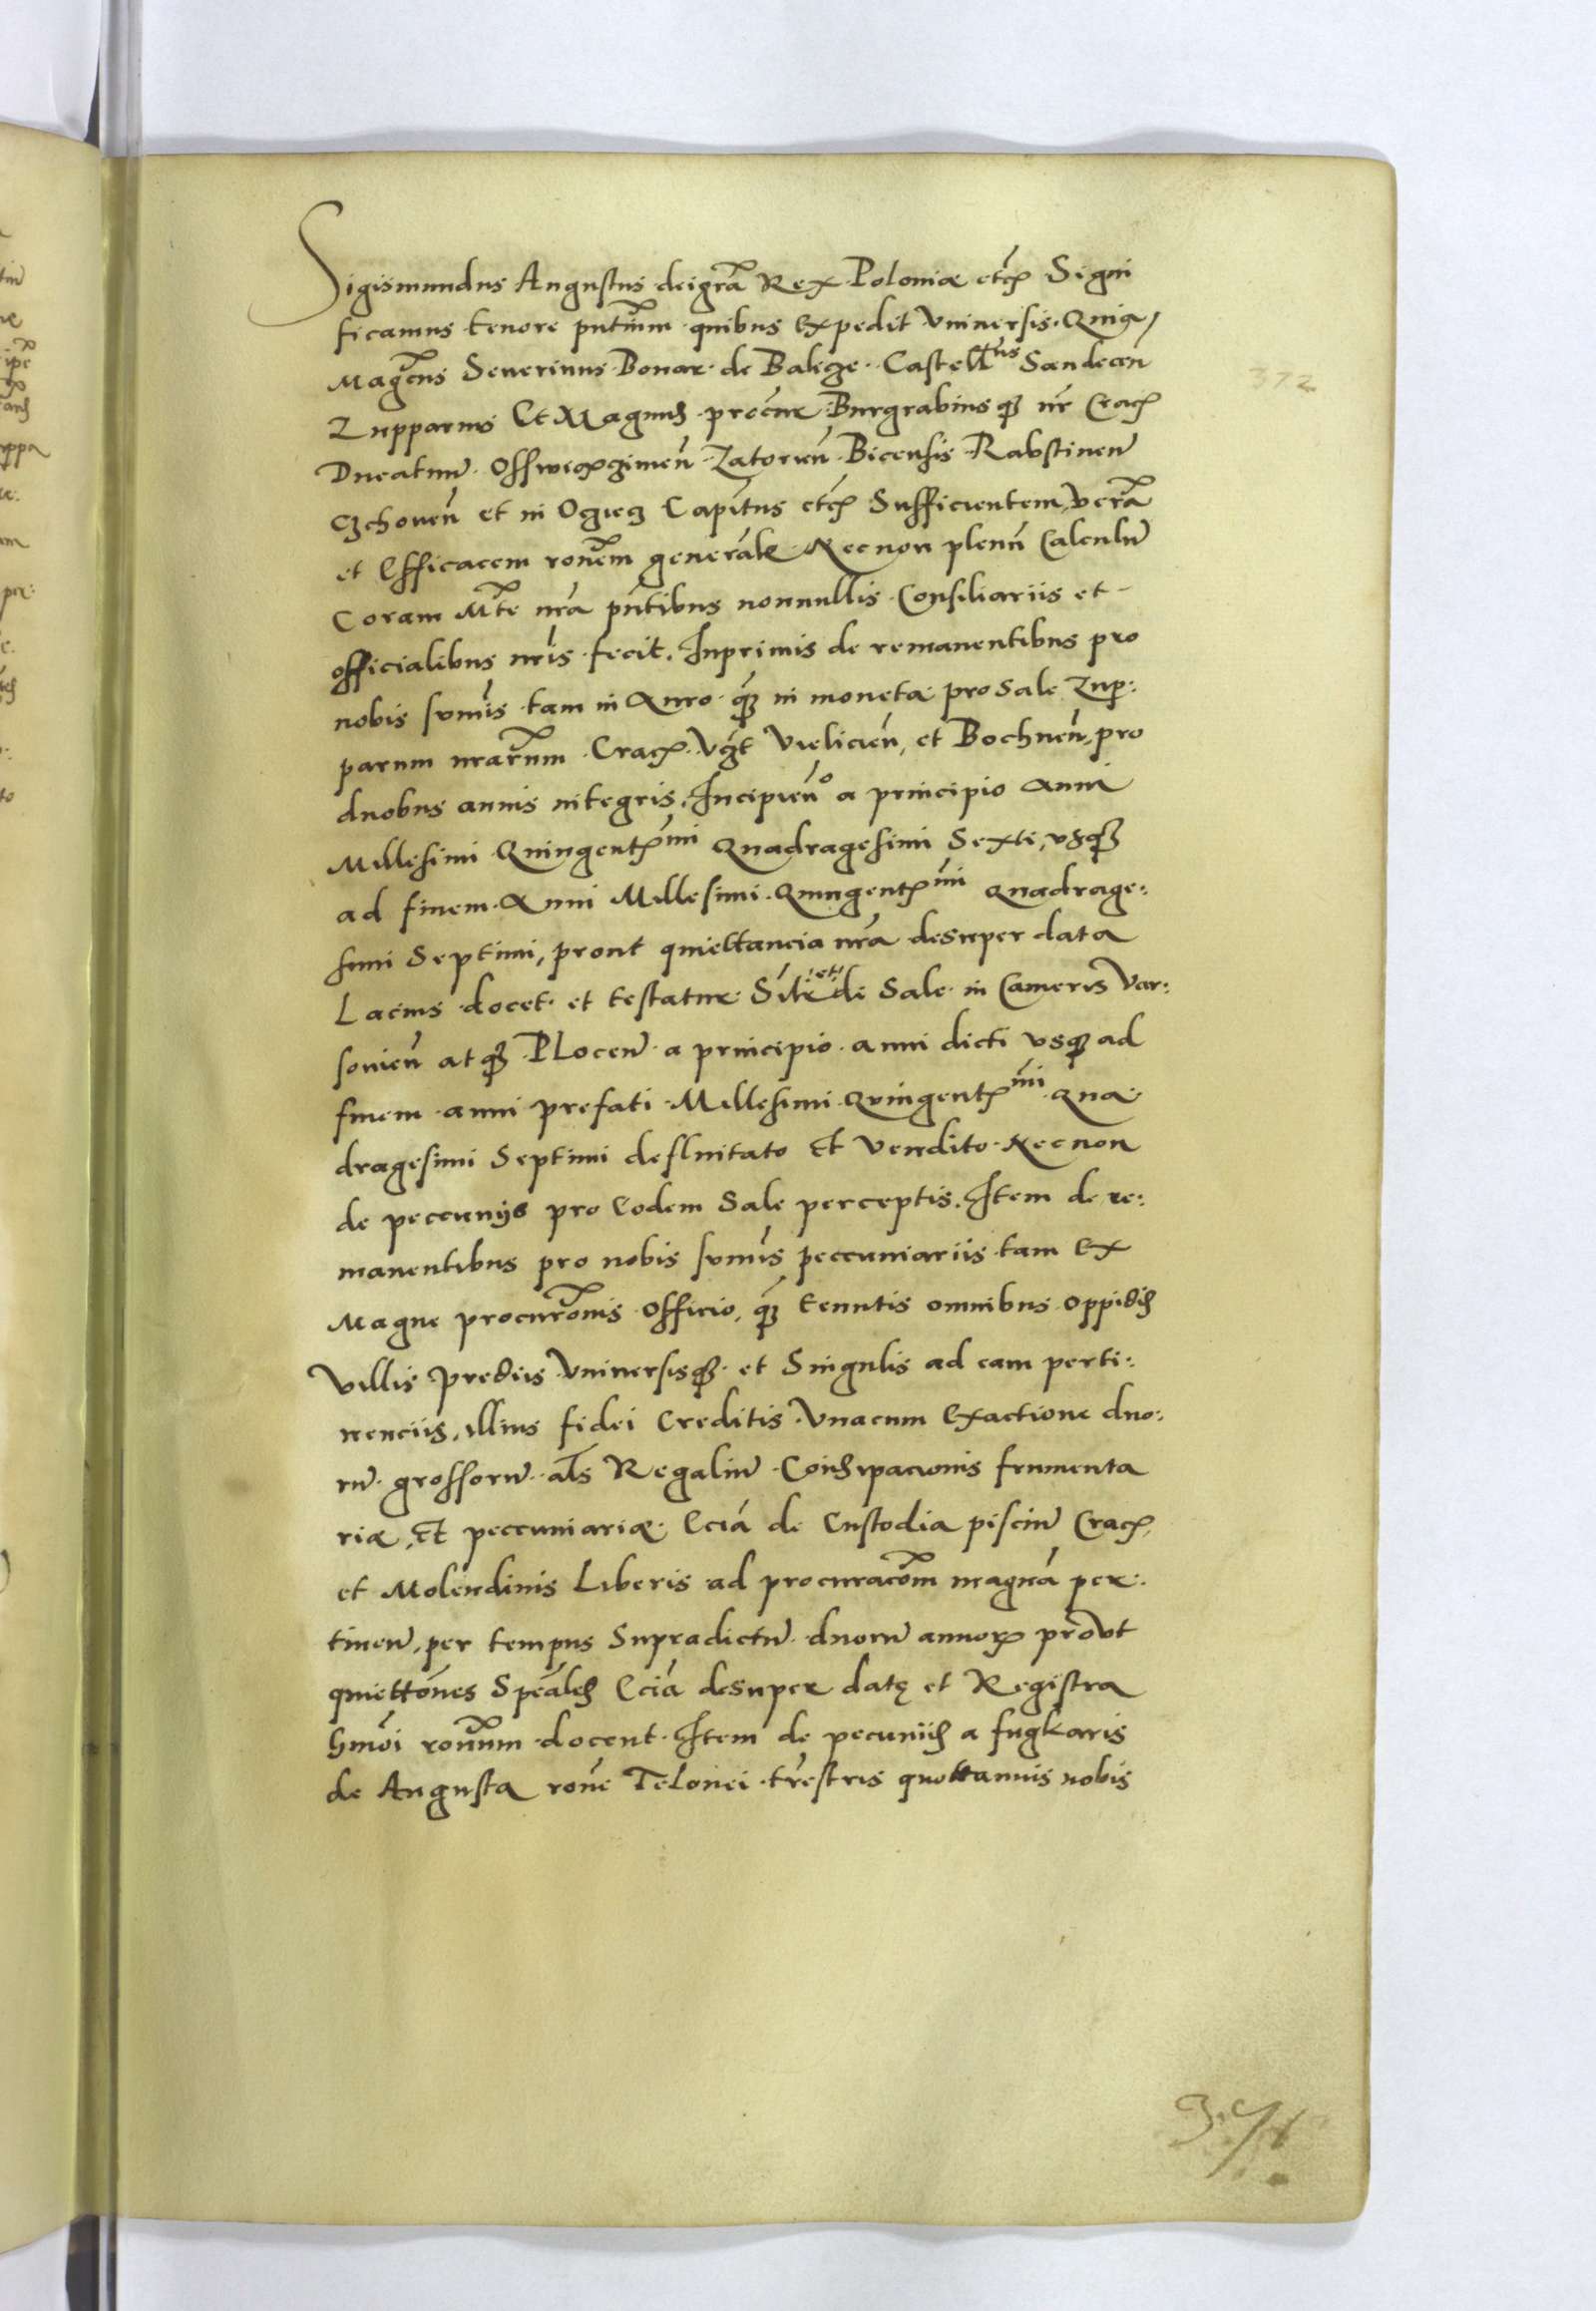 Sigismundus Augustus dei gra͠ Rex Poloniæ etc̃ Signi
ficamus tenore pn̄tium quibus Expedit Vniuersis. Quia,
Mag͠cus Seuerinus Bonar de Balicze Castell͠nus Sandecen̄
Zupparius Et Magnus procur Burgrabiusq3 nr̄ Crac̃
Ducatuū Osswieczimen̄ Zatorien̄ Bicensis Rabstinen̄
Czchouen̄ et in Ogrcz Capit̄us etc̃ Sufficientem, verā
et Efficacem ron̄em generāle Necnon plenū Calculū
Coram M͠te nrā pn̄tibus nonnullis Consiliariis et
officialibus nr̄is fecit. Inprimis de remanentibus pro
nobis sum̄is tam in Auro q̄3 in moneta pro sale Zup:
parum nrārum Crac̃. Vꝫt Vielicien̄, et Bochnen̄, pro
duobus annis integris, Incipien̄o a principio Anni
Millesimi Quingent͠mi Quadragesimi Sexti, vsq3
ad finem Anni Millesimi Quingent͠mi Quadrage:
simi Septimi, prout quiettancia nrā desuper data
Lacius docet et testatur. Silr et de Sale in Cameris Var:
souien̄ atq3 Plocen̄ a principio anni dicti vsq3 ad
finem anni prefati Millesimi Quingent͠mi Qua
dragesimi Septimi defluitato Et Vendito Necnon
de peccunijs pro Eodem Sale perceptis. Item de re:
manentibus pro nobis sum̄is peccuniariis tam Ex
Magne procurōnis officio, q̄3 tenutis omnibus oppidis
Villis Prediis Vniuersisq3 et Singulis ad eam perti:
nenciis, illius fidei Creditis Vnacum Exactione duo:
rū grossorū al̄s Regaliū Contribuacionis frumenta
riæ, Et peccuniariæ Eciā de Custodia piscinū Crac̃
et Molendinis Liberis ad procuracōm magnā per:
tinen̄, per tempus Supradictū duorū annorꝝ proūt
quiettōnes Speāles Eciā desuper datę et Registra
hmōi ronūm docent. Item de pecuniis a fugkaris
de Augusta rone Telonei t̄restris quottannis nobis
372
371